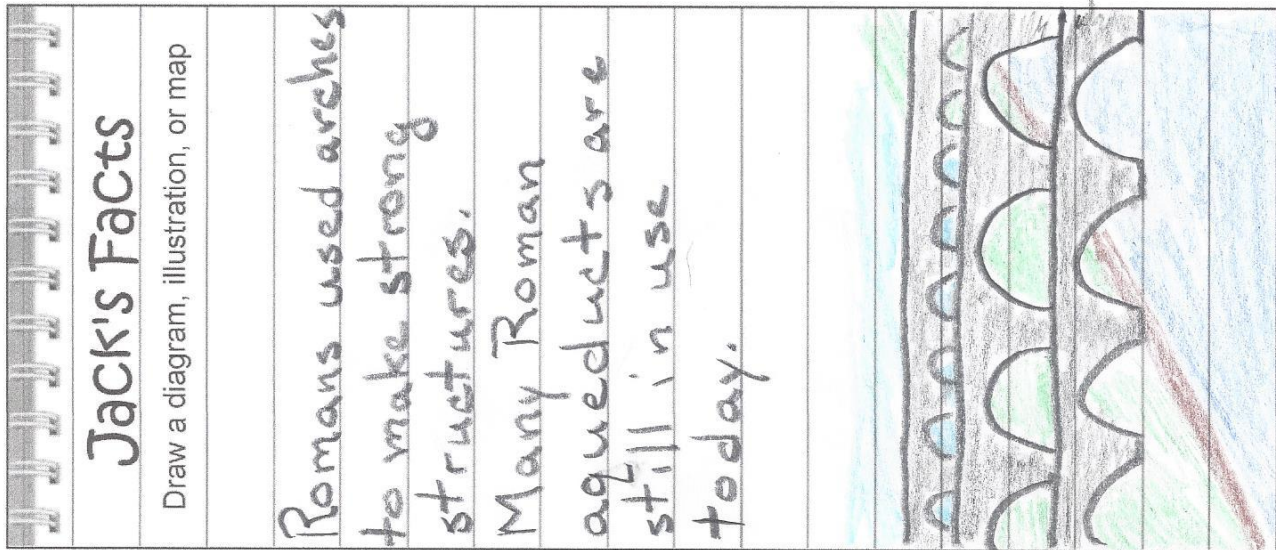 Jack's Facts
Draw a diagram, illustration, or map
Romans used arches
to make strong
structures.
Many Roman
aqueducts are
still in use
today.